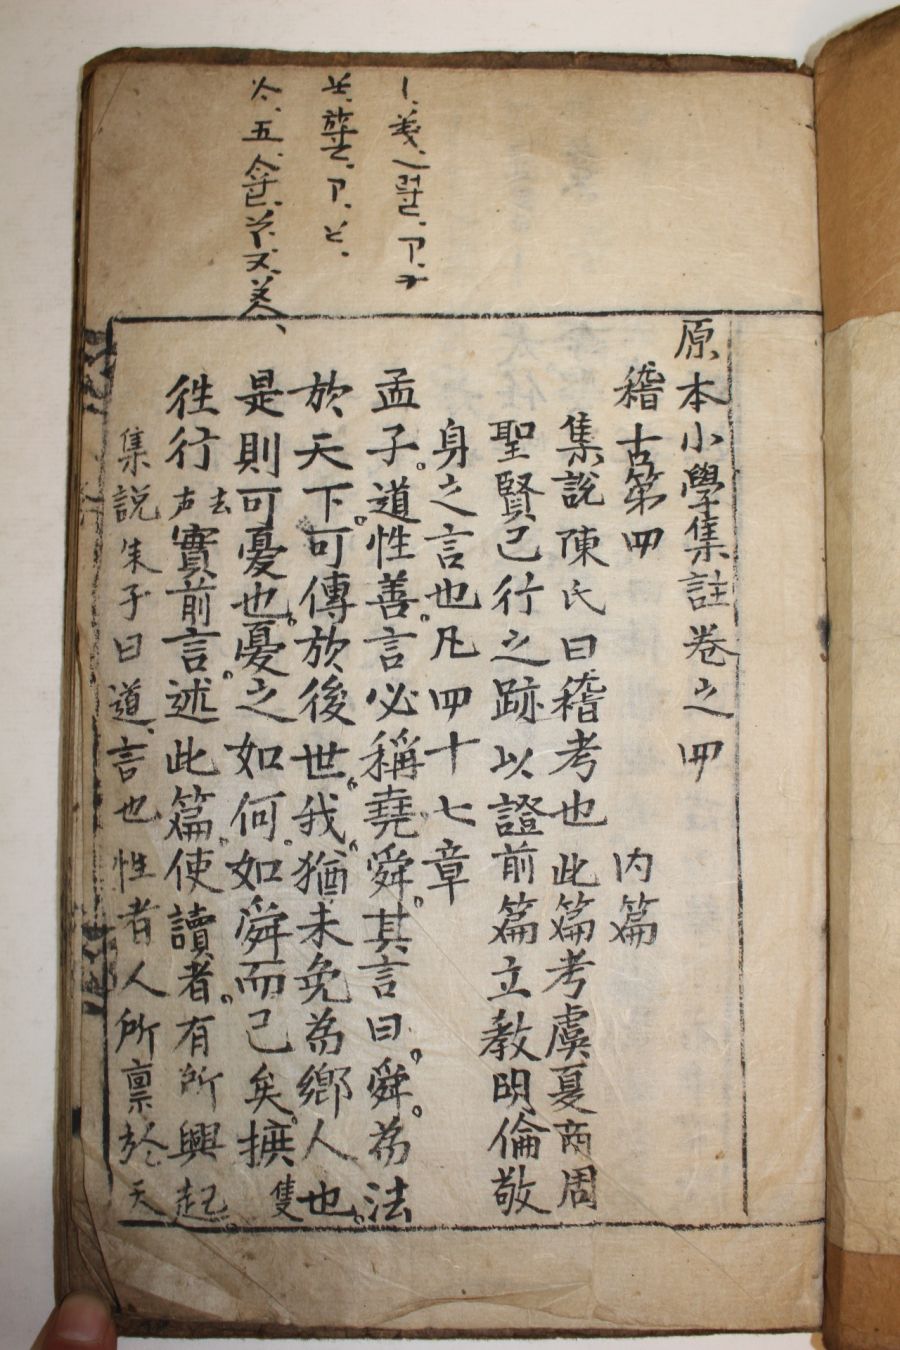 原本小學集註卷之四
稽古第四 内篇
集說陳氏曰稽考也此篇考虞夏商周
聖賢已行之跡以證前篇立教明倫敬
身之言也凡四十七章
孟子道性善言必稱堯舜其言曰舜為法
於天下可傳於後世我猶未免為鄉人也
是則可憂也憂之如何如舜而已矣摭隻
徃行去声實前言述此篇使讀者有所興起
集說朱子曰道言也性者人所稟於天